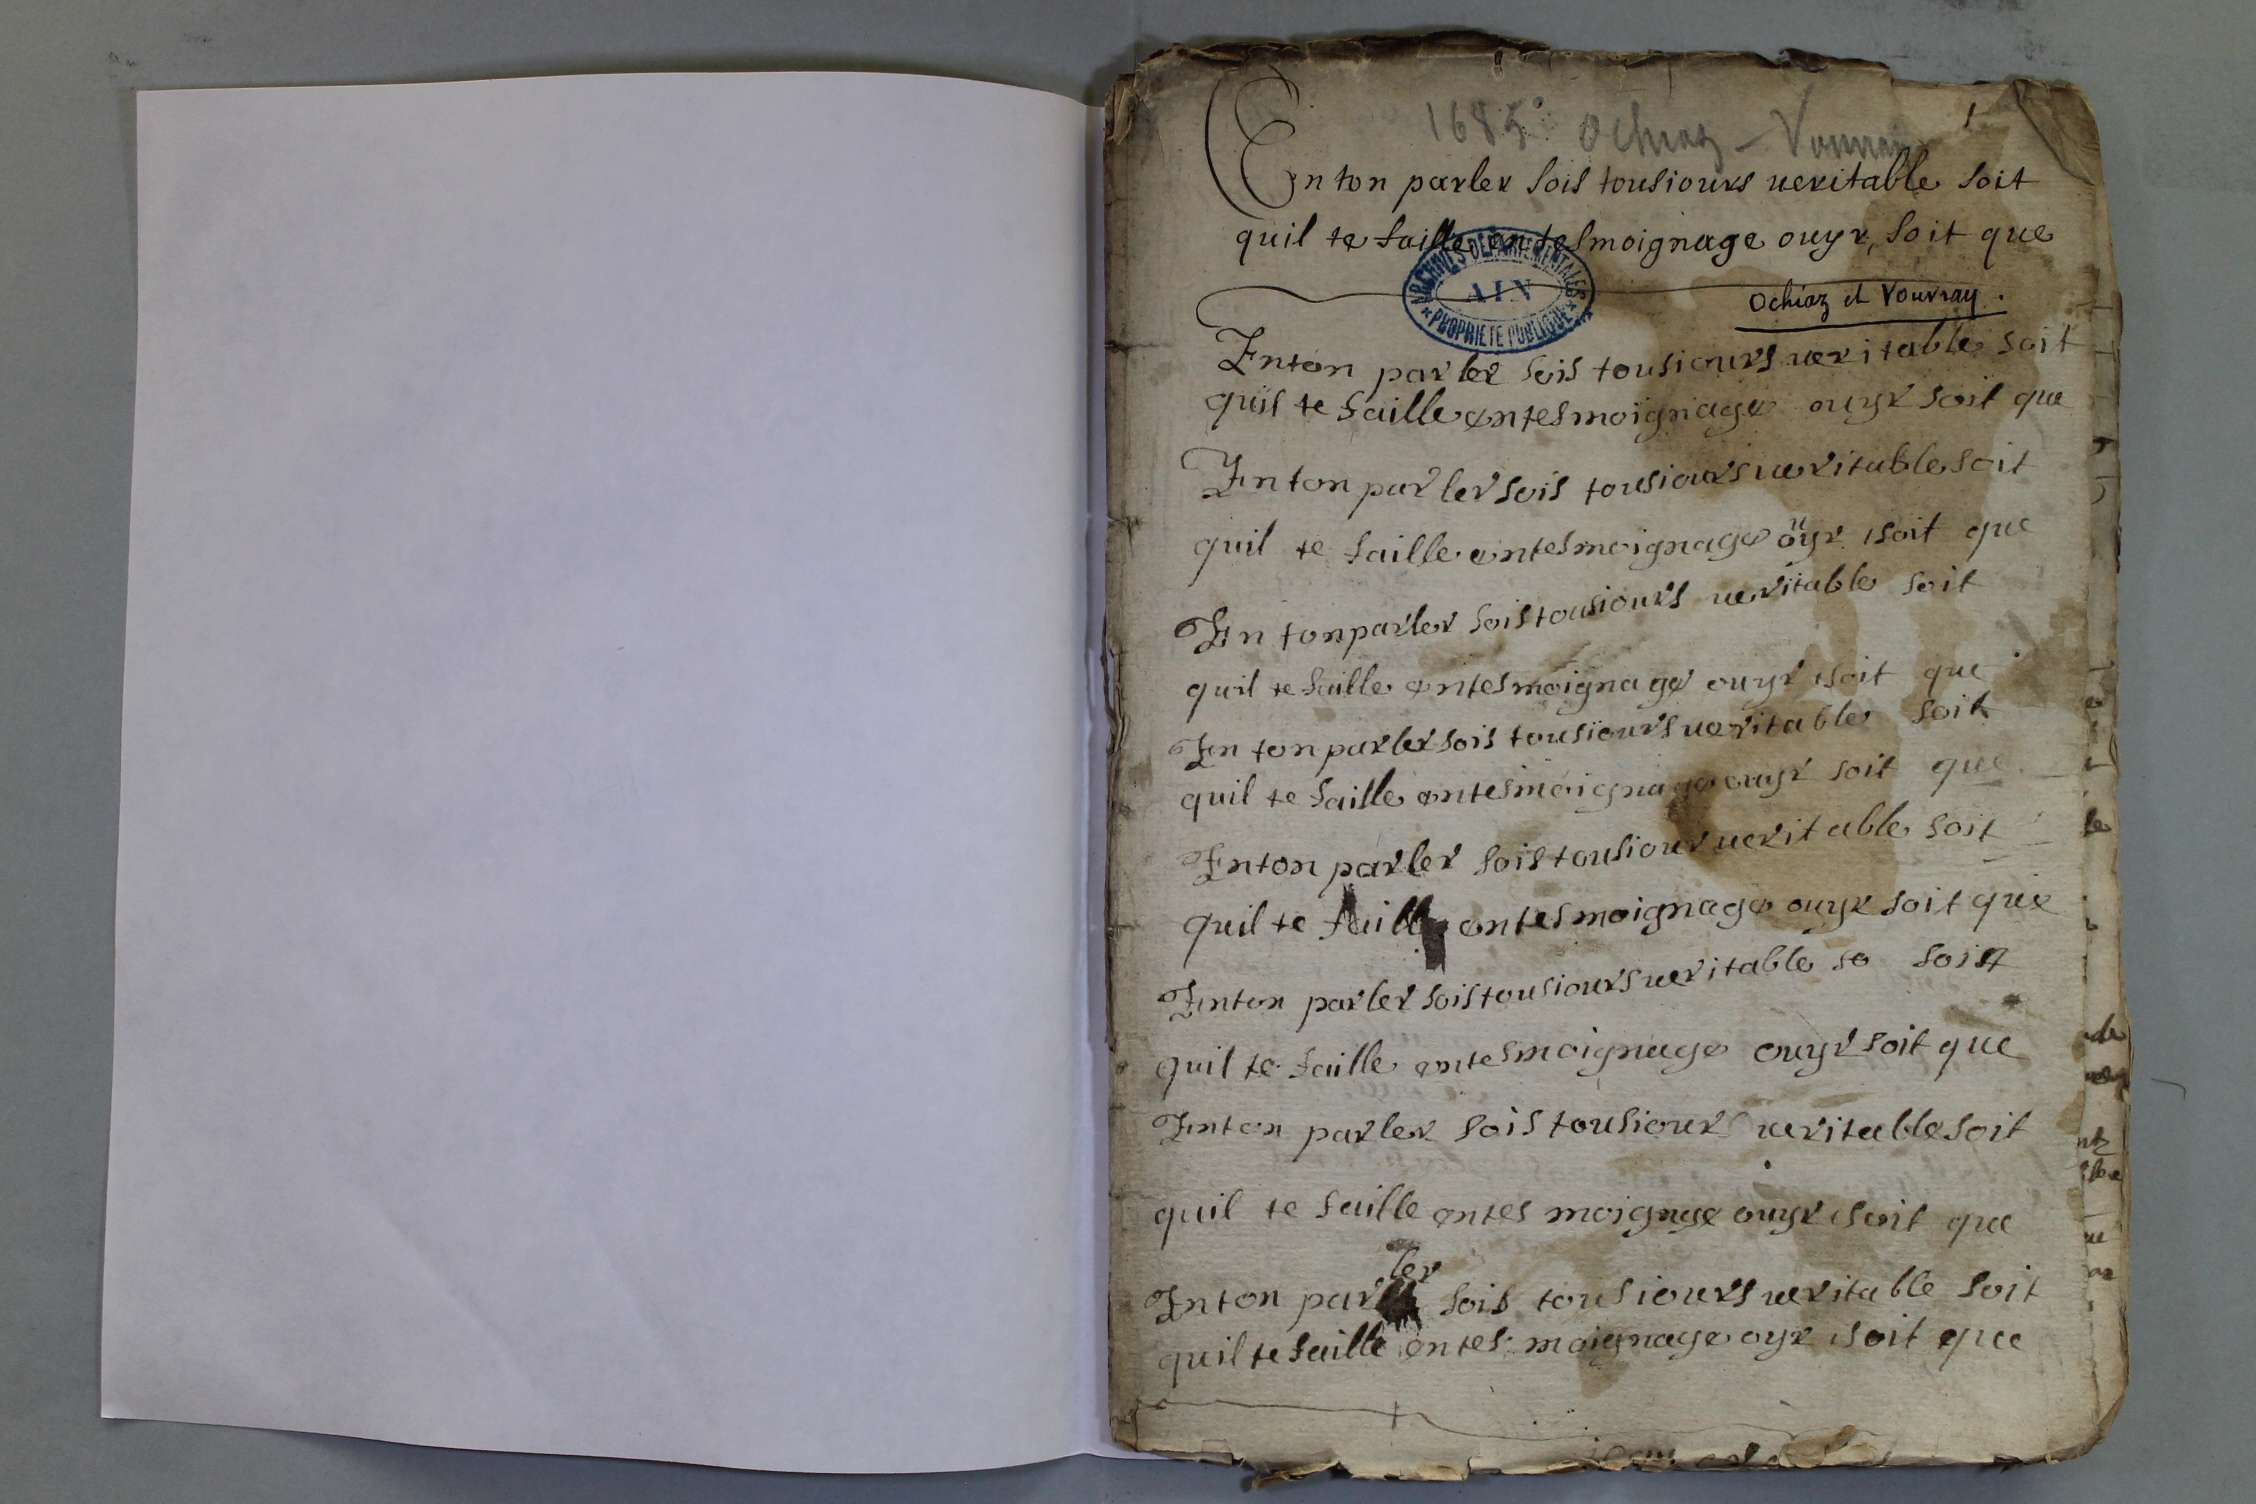 1
1685 Ochiaz - Vouvray
En ton parler sois tousiours ueritable soit
quil te faille en tesmoignage ouyr, soit que
ARCHIVES DÉPARTEMENTALES
AIN
PROPRIÉTÉ PUBLIQUE
Ochiaz et Vouvray.
Enton parler sois tousiours ueritable soit
quil te faille entesmoignage ouyr soit que
En ton parler sois tousiours ueritable soit
quil te faille entesmoignage ouyr soit que
En ton parler sois tousiours ueritable soit
quil te faille entesmoignage ouyr soit que
En ton parler sois tousiours ueritable soit
quil te faille entesmoignage ouyr soit que
Enton parler sois tousiour ueritable soit
quil te faille entesmoignage ouyr soit que
Enton parler sois tousiours ueritable so soit
quil te faille entesmoignage ouyr soit que
Enton parler sois tousiours ueritable soit
quil te faille entes moignage ouyr soit que
Enton parler sois tousiours ueritable soit
quil te faille entes moignage oyr soit que